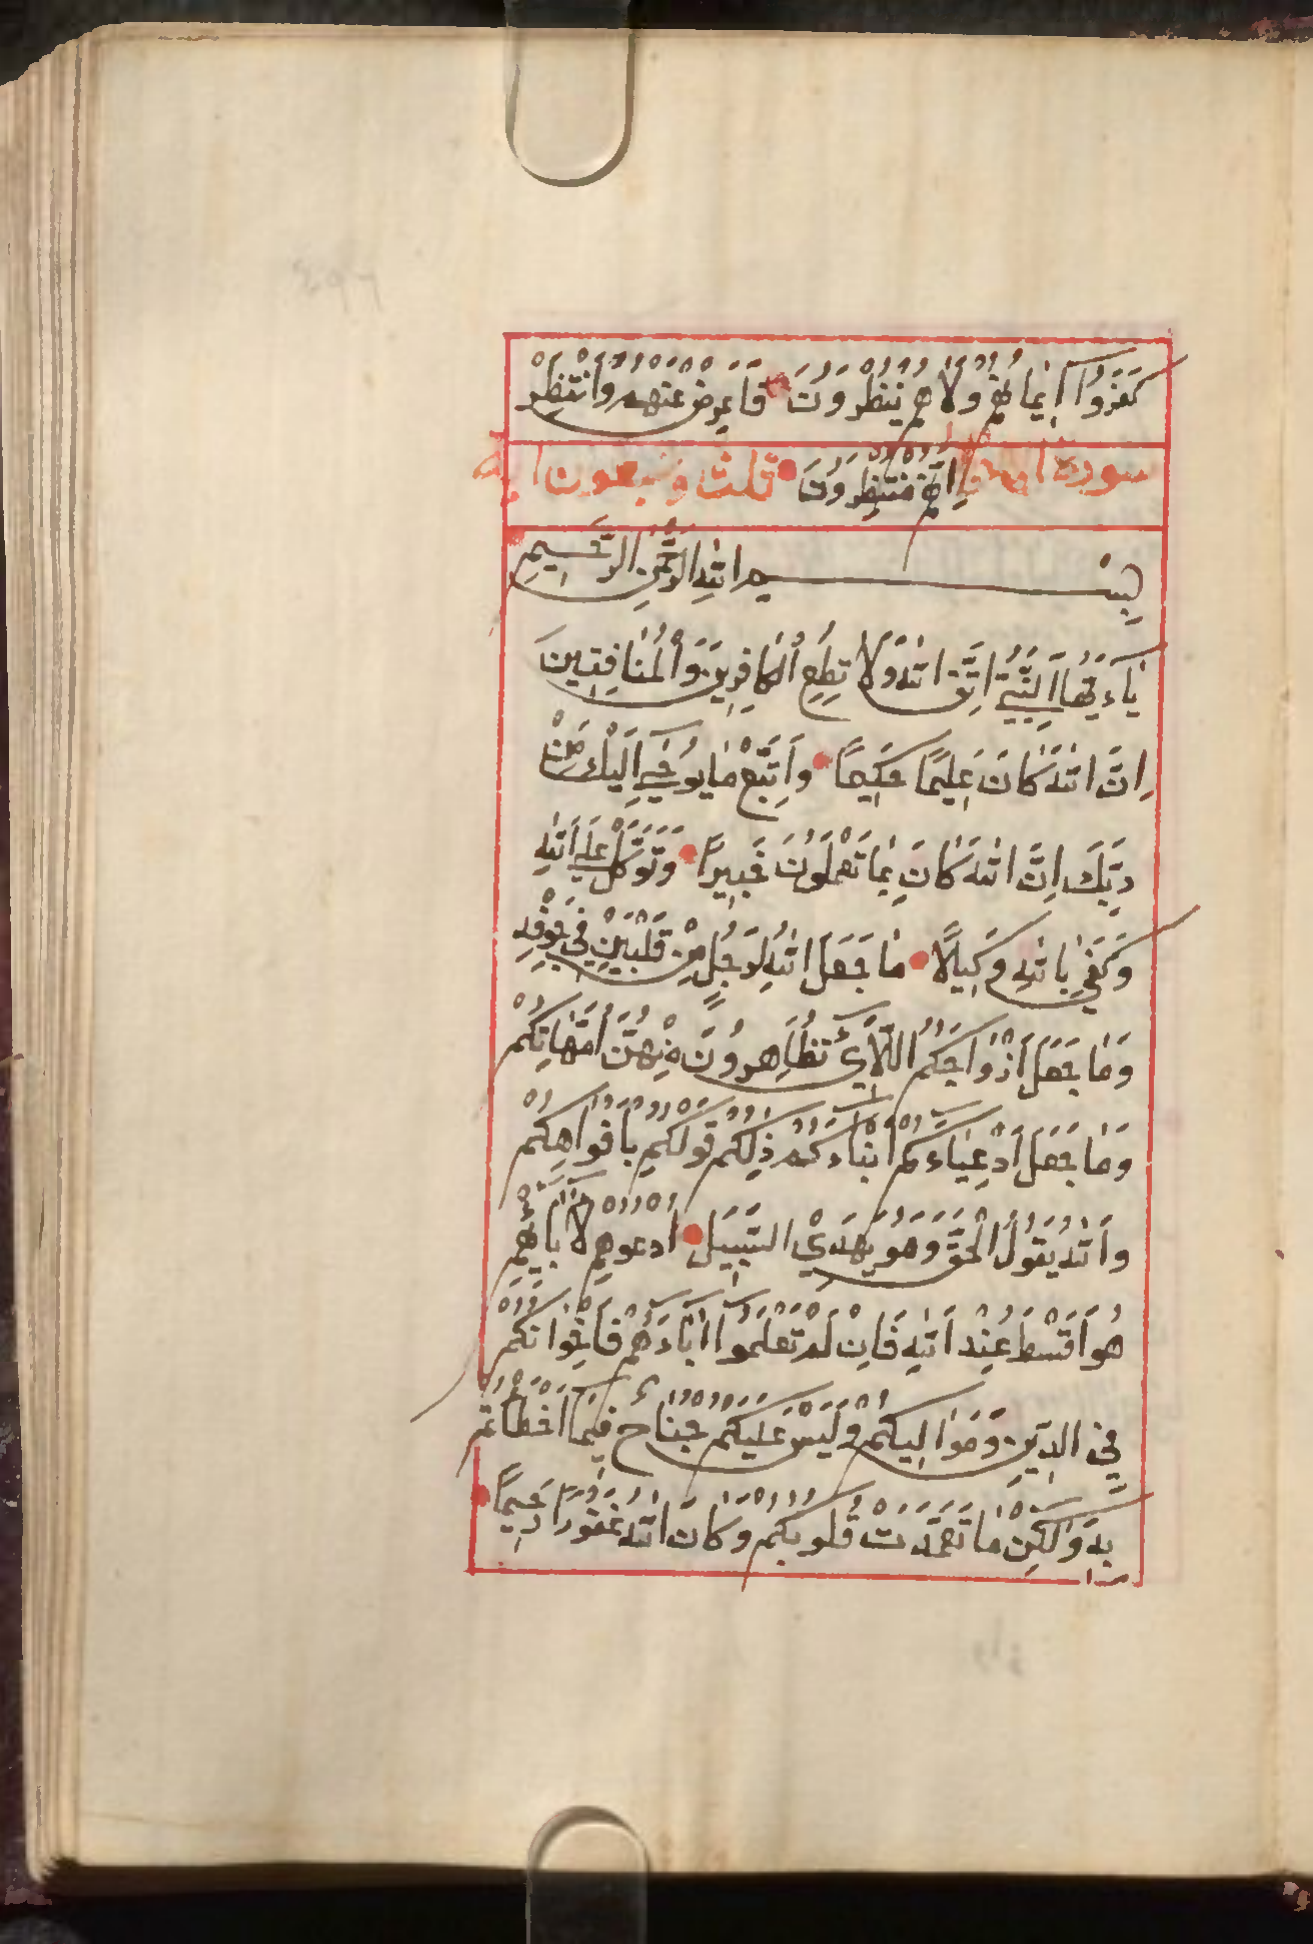 كَفَرُوا اِيمَانُهُمْ وَلَا هُمْ يُنْظَرُونَ فَاَعْرِضْ عَنْهُمْ وَانْتَظِرْ
سورة اِنَّهُمْ مُنْتَظِرُونَ ثلث وسبعون اية
بِسْمِ اللهِ الرَّحْمٰنِ الرَّحِيمِ
يَاءَيُّهَا النَّبِيُّ اتَّقِ اللهَ وَلَا تُطِعِ الْكَافِرِينَ وَالْمُنَافِقِينَ
اِنَّ اللهَ كَانَ عَلِيمًا حَكِيمًا وَاتَّبِعْ مَا يُوحَىٰ اِلَيْكَ مِنْ
رَبِّكَ اِنَّ اللهَ كَانَ بِمَا تَعْمَلُونَ خَبِيرًا وَتَوَكَّلْ عَلَى اللهِ
وَكَفَىٰ بِاللهِ وَكِيلًا مَا جَعَلَ اللهُ لِرَجُلٍ مِنْ قَلْبَيْنِ فِي جَوْفِهِ
وَمَا جَعَلَ اَزْوَاجَكُمُ اللَّائِي تُظَاهِرُونَ مِنْهُنَّ اُمَّهَاتِكُمْ
وَمَا جَعَلَ اَدْعِيَاءَكُمْ اَبْنَاءَكُمْ ذٰلِكُمْ قَوْلُكُمْ بِاَفْوَاهِكُمْ
وَاللهُ يَقُولُ الْحَقَّ وَهُوَ يَهْدِي السَّبِيلَ اُدْعُوهُمْ لِاٰبَائِهِمْ
هُوَ اَقْسَطُ عِنْدَ اللهِ فَاِنْ لَمْ تَعْلَمُوا اٰبَاءَهُمْ فَاِخْوَانُكُمْ
فِي الدِّينِ وَمَوَالِيكُمْ وَلَيْسَ عَلَيْكُمْ جُنَاحٌ فِيمَا اَخْطَاْتُمْ
بِهِ وَلٰكِنْ مَا تَعَمَّدَتْ قُلُوبُكُمْ وَكَانَ اللهُ غَفُورًا رَحِيمًا